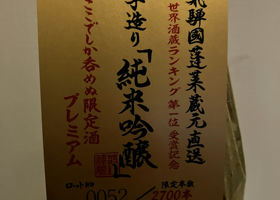 飛騨國蓬莱蔵元直送
世界酒蔵ランキング第一位受賞記念
手造り「純米吟醸」
ここでしか呑めぬ限定酒
プレミアム
ロット№
0052
限定本数
2700本